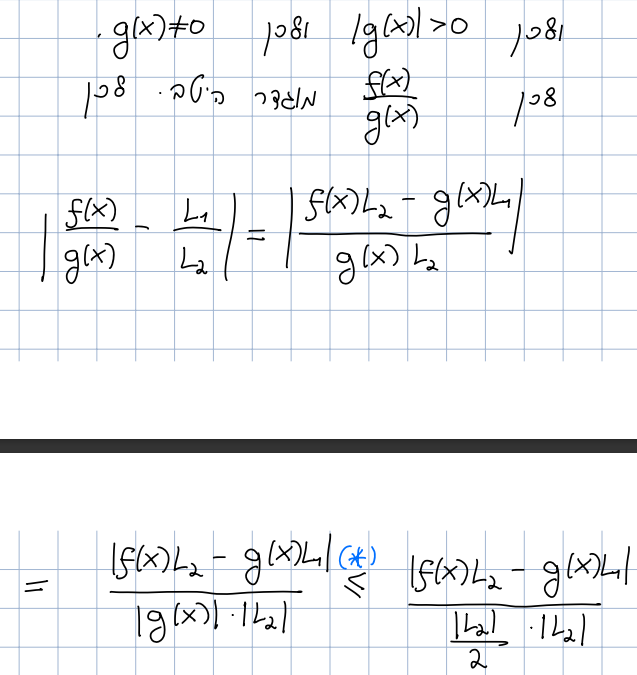 ולכן |g(x)| > 0 ולכן g(x) ≠ 0.
לכן f(x)/g(x) מוגדר היטב. לכן
|f(x)/g(x) - L₁/L₂| = |(f(x)L₂ - g(x)L₁)/(g(x) L₂)|
= |f(x)L₂ - g(x)L₁|/(|g(x)|·|L₂|) ≤(*) |f(x)L₂ - g(x)L₁|/(|L₂|/2 ·|L₂|)